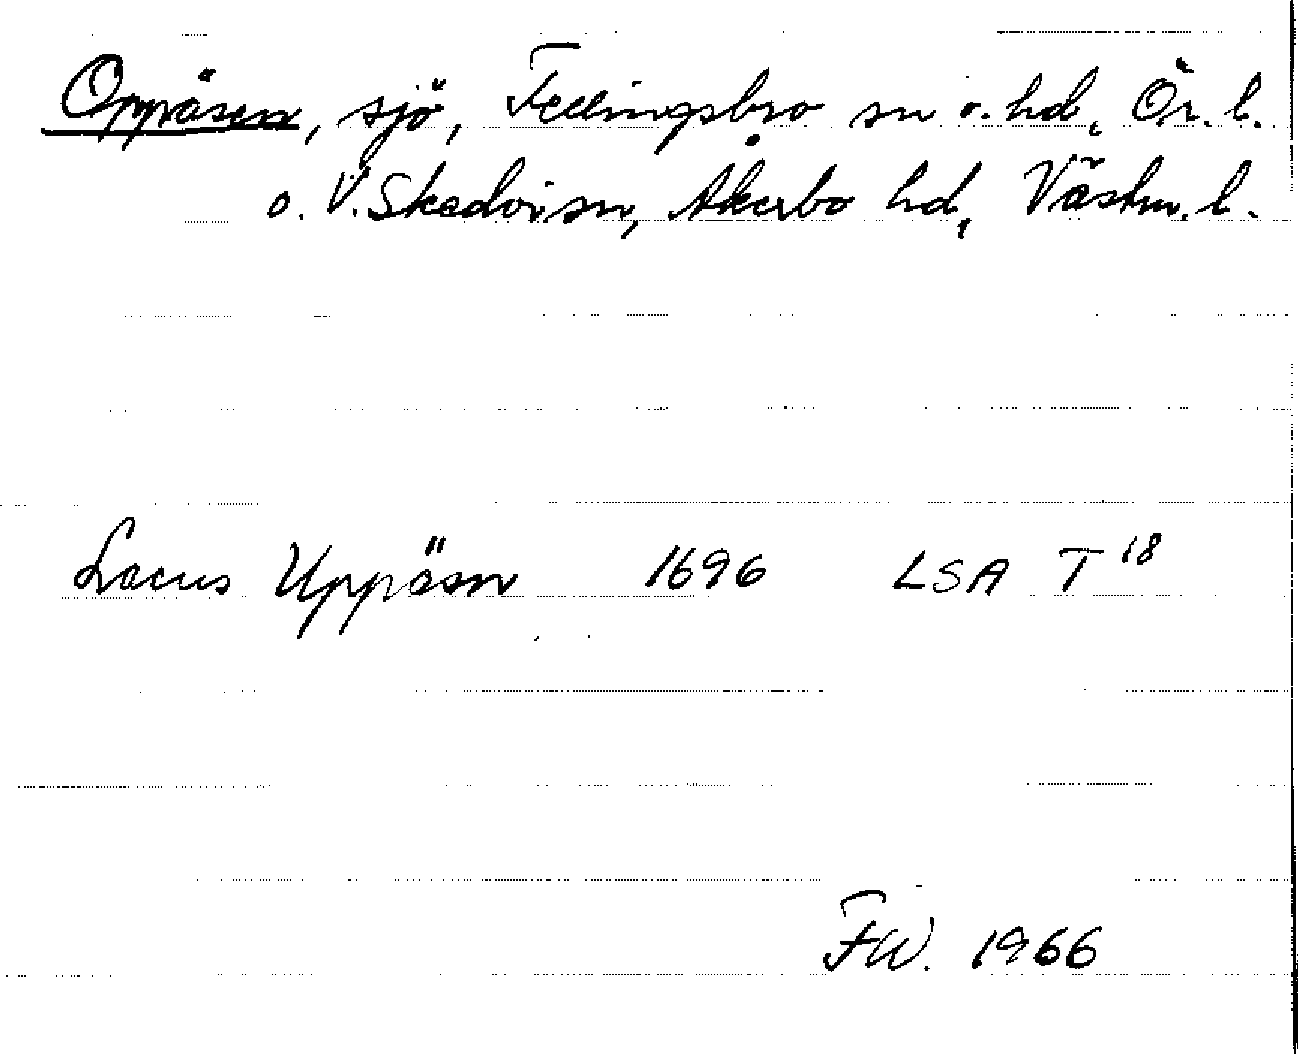 Oppäsen, sjö, Fellingsbro sn o. hd, Ör. l.
o. V. Skedvi sn, Åkerbo hd, Västm. l.
Lacus Uppäsn 1696 LSA T 18
FW. 1966